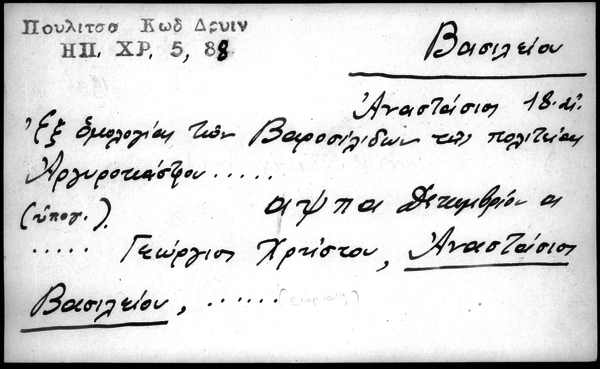 Πουλιτσα Κωδ Δρυιν
ΗΠ. ΧΡ. 5, 88
Βασιλείου
Ἀναστάσιος 18. αἰ.
Ἐξ ὁμολογίας τῶν Βαροσιλιδων τῆς πολιτείας
Ἀργυροκάστρου .....
(ὑπογ.). αψπα Δεκεμβρίου α
..... Γεώργιος Χρίστου, Ἀναστάσιος
Βασιλείου, ......